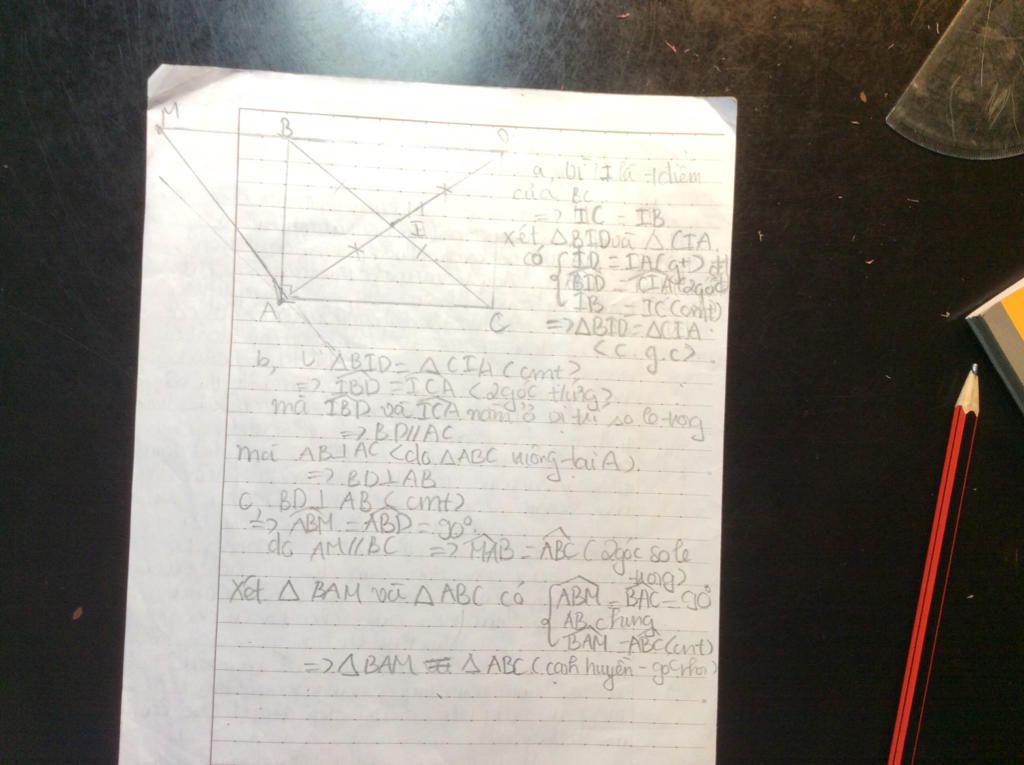 M
B
D
I
A
C
a, Vì I là t điểm
của BC
=> IC = IB
xét △BID và △CIA
có { ID = IA (gt)
BID = CIA (2 góc đđ
IB = IC (cmt)
=> △BID = △CIA
<c.g.c>
b, Vì △BID = △CIA (cmt>
=> IBD = ICA <2 góc tứng>
mà IBD và ICA nằm ở vị trí so le trong
=> BD//AC
mà AB⊥AC <do △ABC vuông tại A>.
=> BD⊥AB
C, BD⊥AB (cmt)
=> ABM = ABD = 90°
do AM//BC => MAB = ABC (2 góc so le
trong)
Xét △ BAM và △ ABC có { ABM = BAC = 90°
AB chung
BAM = ABC (cmt)
=> △ BAM △ ABC (cạnh huyền - góc nhọn)